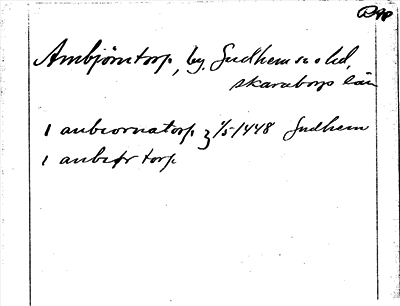 DAP
Ambjörntorp, by. Gudhem s o hd,
Skaraborgs län
1 anbiornatorp } 1/5 1448 Gudhem
1 anbiør torp